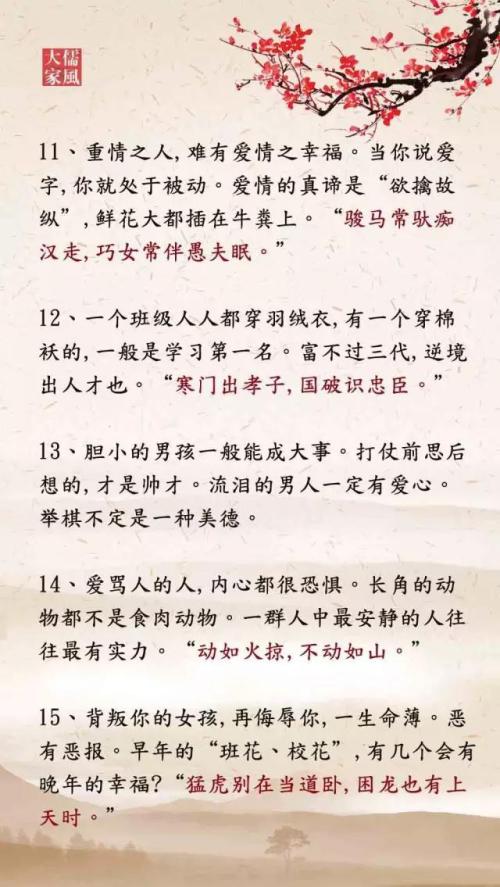 儒風
大家
11、重情之人,难有爱情之幸福。当你说爱
字,你就处于被动。爱情的真谛是“欲擒故
纵”,鲜花大都插在牛粪上。“骏马常驮痴
汉走,巧女常伴愚夫眠。”
12、一个班级人人都穿羽绒衣,有一个穿棉
袄的,一般是学习第一名。富不过三代,逆境
出人才也。“寒门出孝子,国破识忠臣。”
13、胆小的男孩一般能成大事。打仗前思后
想的,才是帅才。流泪的男人一定有爱心。
举棋不定是一种美德。
14、爱骂人的人,内心都很恐惧。长角的动
物都不是食肉动物。一群人中最安静的人往
往最有实力。“动如火掠,不动如山。”
15、背叛你的女孩,再侮辱你,一生命薄。恶
有恶报。早年的“班花、校花”,有几个会有
晚年的幸福?“猛虎别在当道卧,困龙也有上
天时。”